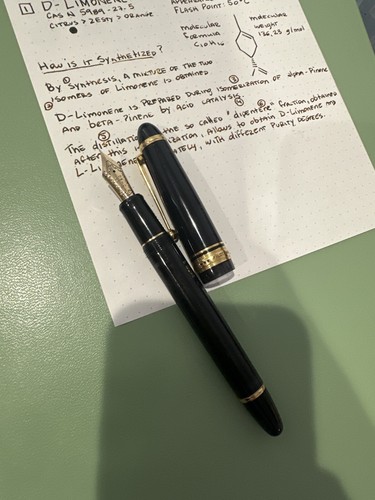 1 D-LIMONENE
CAS N° 5989-27-5
CITRUS > ZESTY > ORANGE
FLASH POINT: 50°C
MOLECULAR
FORMULA
C10 H16
MOLECULAR
WEIGHT
136,23 g/mol
HOW IS IT SYNTHETIZED?
① BY SYNTHESIS, A MIXTURE OF THE TWO
ISOMERS OF LIMONENE IS OBTAINED
② D-LIMONENE IS PREPARED DURING ISOMERIZATION OF ③ alpha-PINENE
AND beta-PINENE BY ACID CATALYSIS. ④
THE DISTILLATION THE SO CALLED "dipentene" FRACTION, OBTAINED
AFTER THIS ALLOWS TO OBTAIN D-LIMONENE AND
L- WITH DIFFERENT PURITY DEGREES.